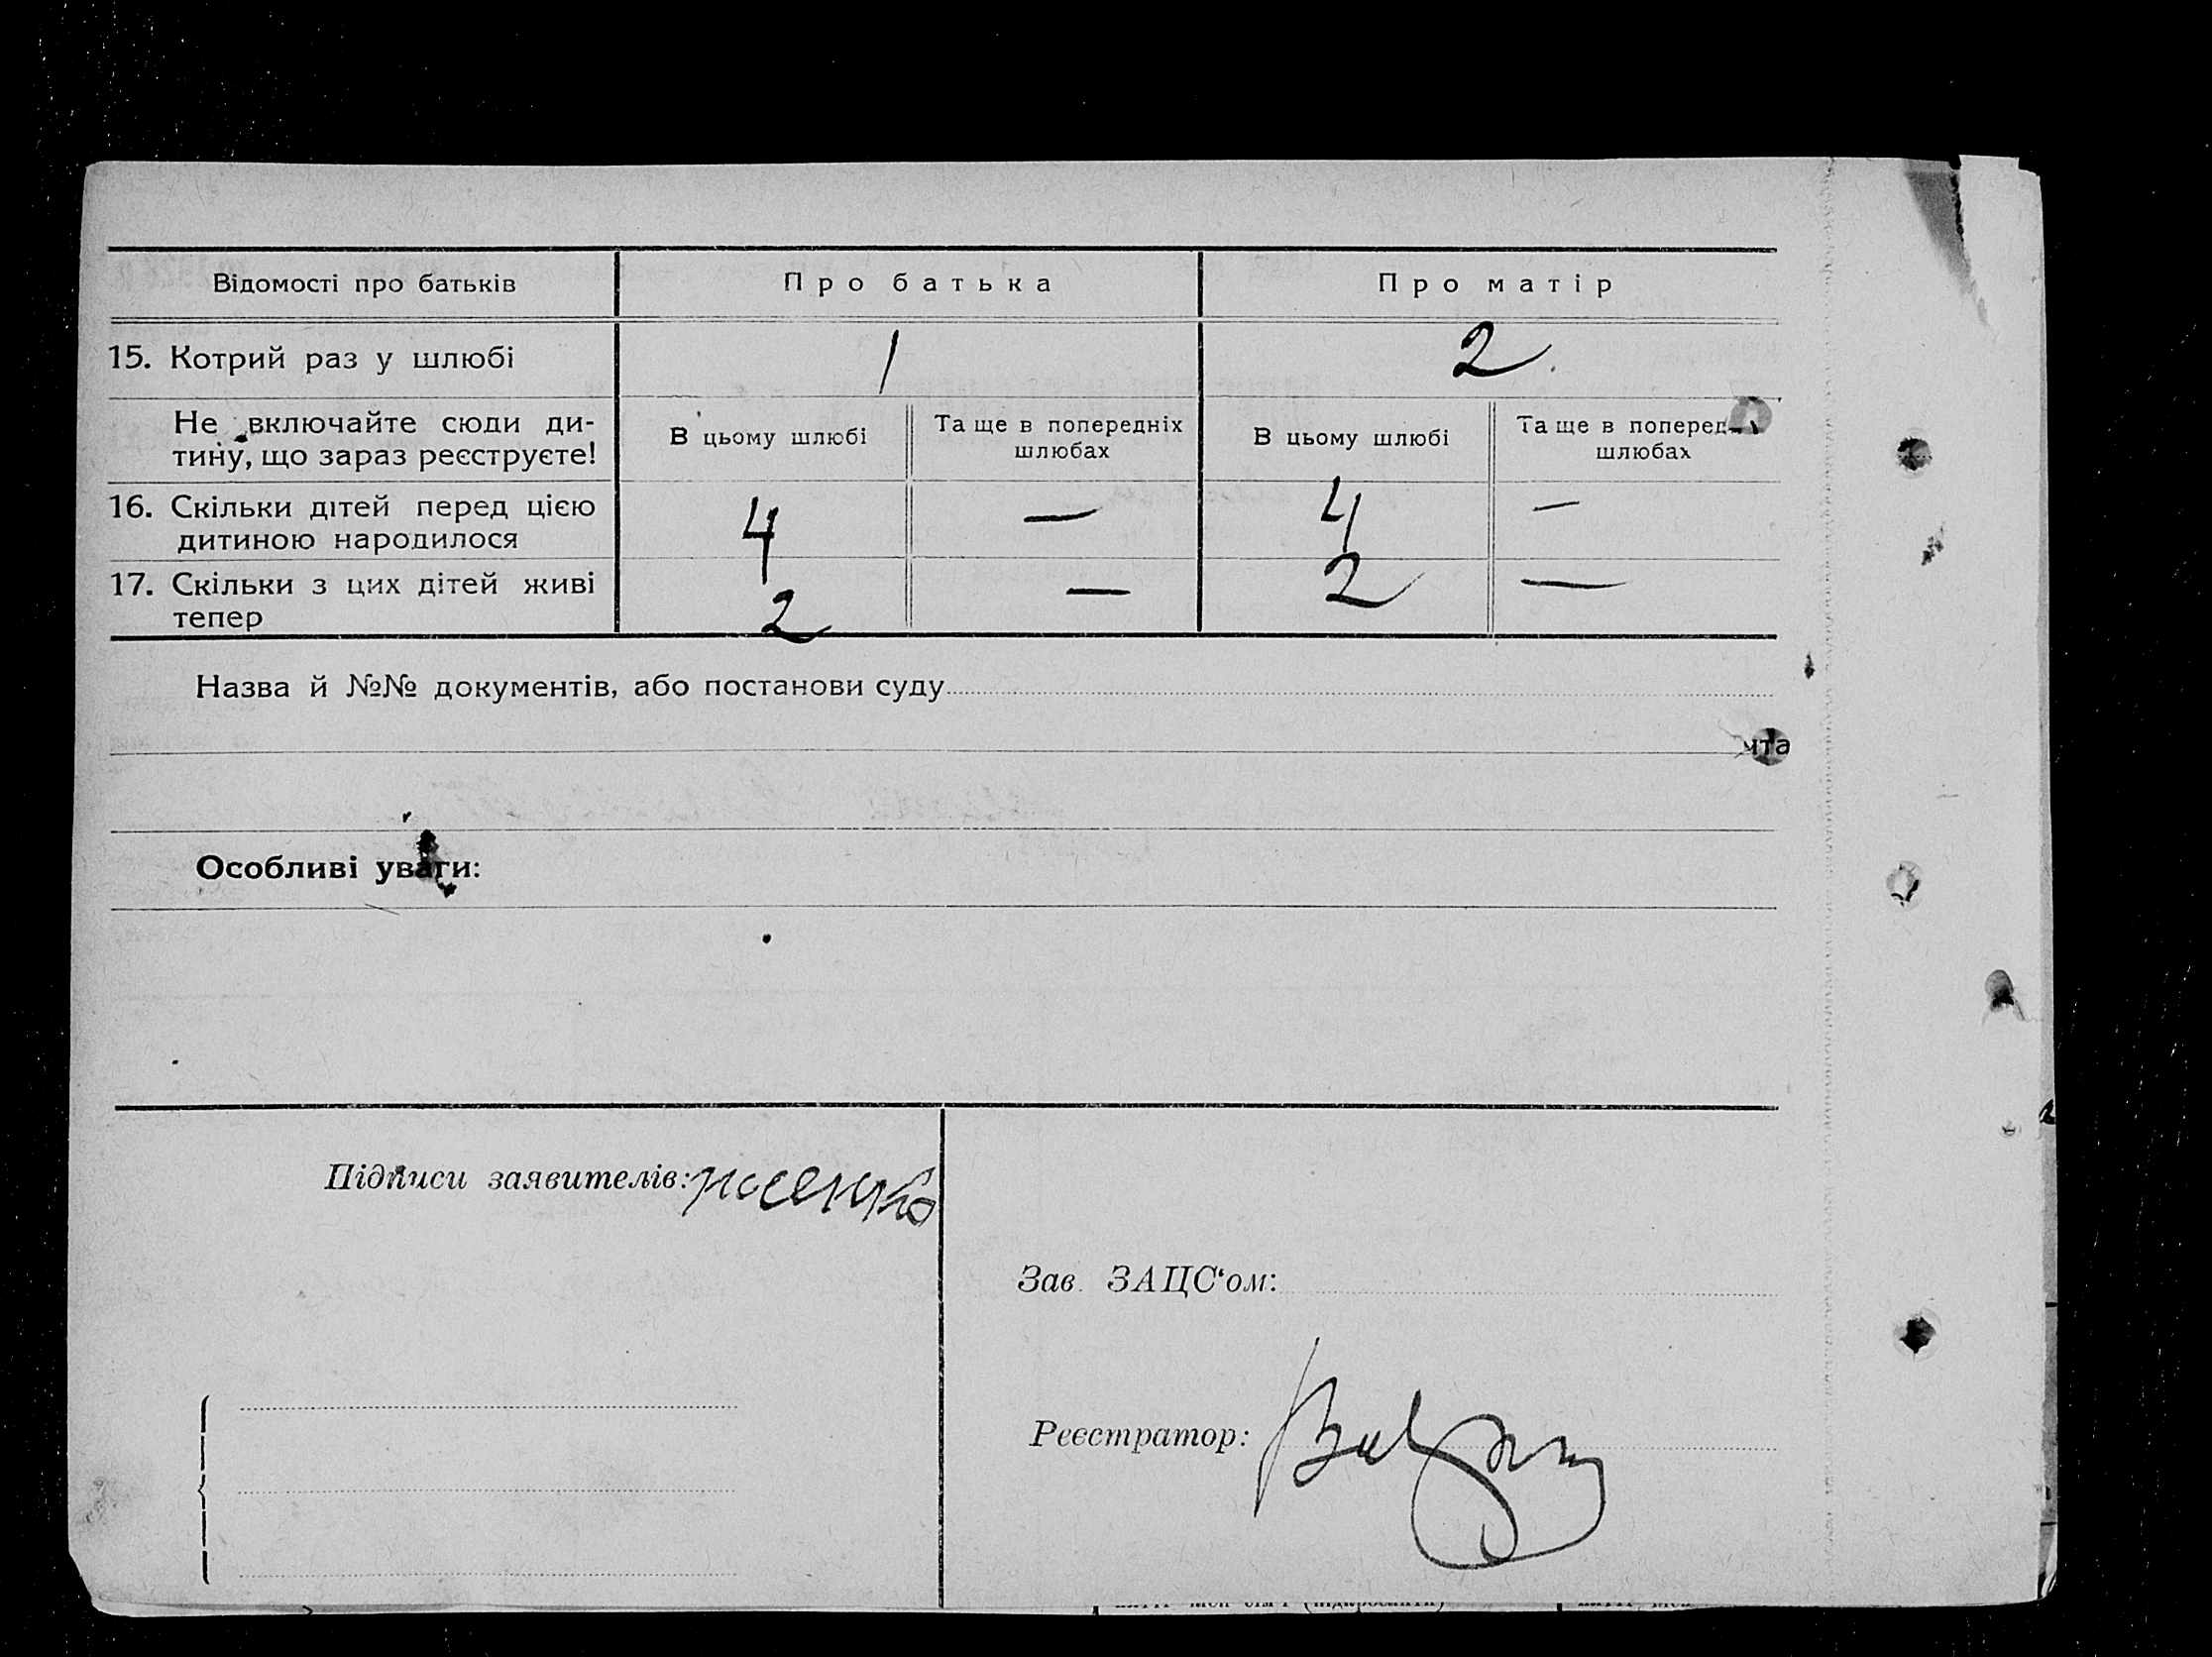 Відомості про батьків
Про батька
Про матір
15. Котрий раз у шлюбі
1
2.
Не включайте сюди ди-
тину, що зараз реєструєте!
В цьому шлюбі
Та ще в попередніх
шлюбах
В цьому шлюбі
Та ще в поперед
шлюбах
16. Скільки дітей перед цією
дитиною народилося
4
—
4
—
17. Скільки з цих дітей живі
тепер
2
—
2
—
Назва й №№ документів, або постанови суду
чта
Особливі уваги:
Підписи заявителів:
Зав. ЗАЦС‘ом:
Реєстратор: